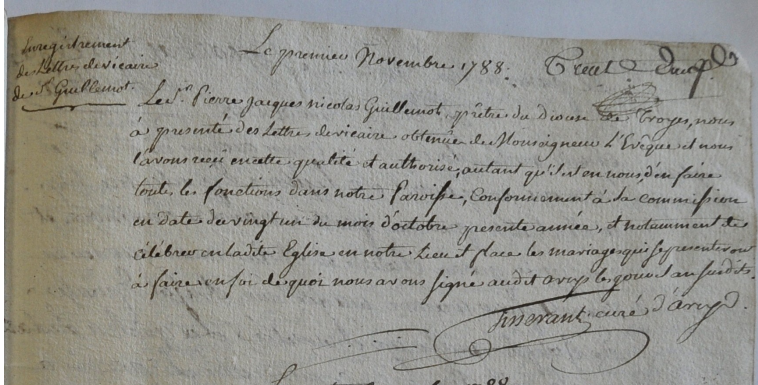 Enregistrement
des Lettres de vicaire
de Sr. Guillemot.
Le premier Novembre 1788.
Le Sr. Pierre Jacques Nicolas Guillemot, prêtre du Diocese de Troyes, nous
à presenté des Lettres de vicaire obtenües de Monseigneur L'Evêque et nous
l'avons reçu en cette qualité et authorisé, autant qu'il est en nous, d'en faire
toutes les fonctions dans notre Paroisse, Conformement à sa commission
en date du vingt un du mois d'octobre presente année, et notamment de
célébrer en ladite Eglise en notre Lieu et place les mariages qui se presenteront
à faire. en foi de quoi nous avons signé audit les jour et an susdits.
curé
1788